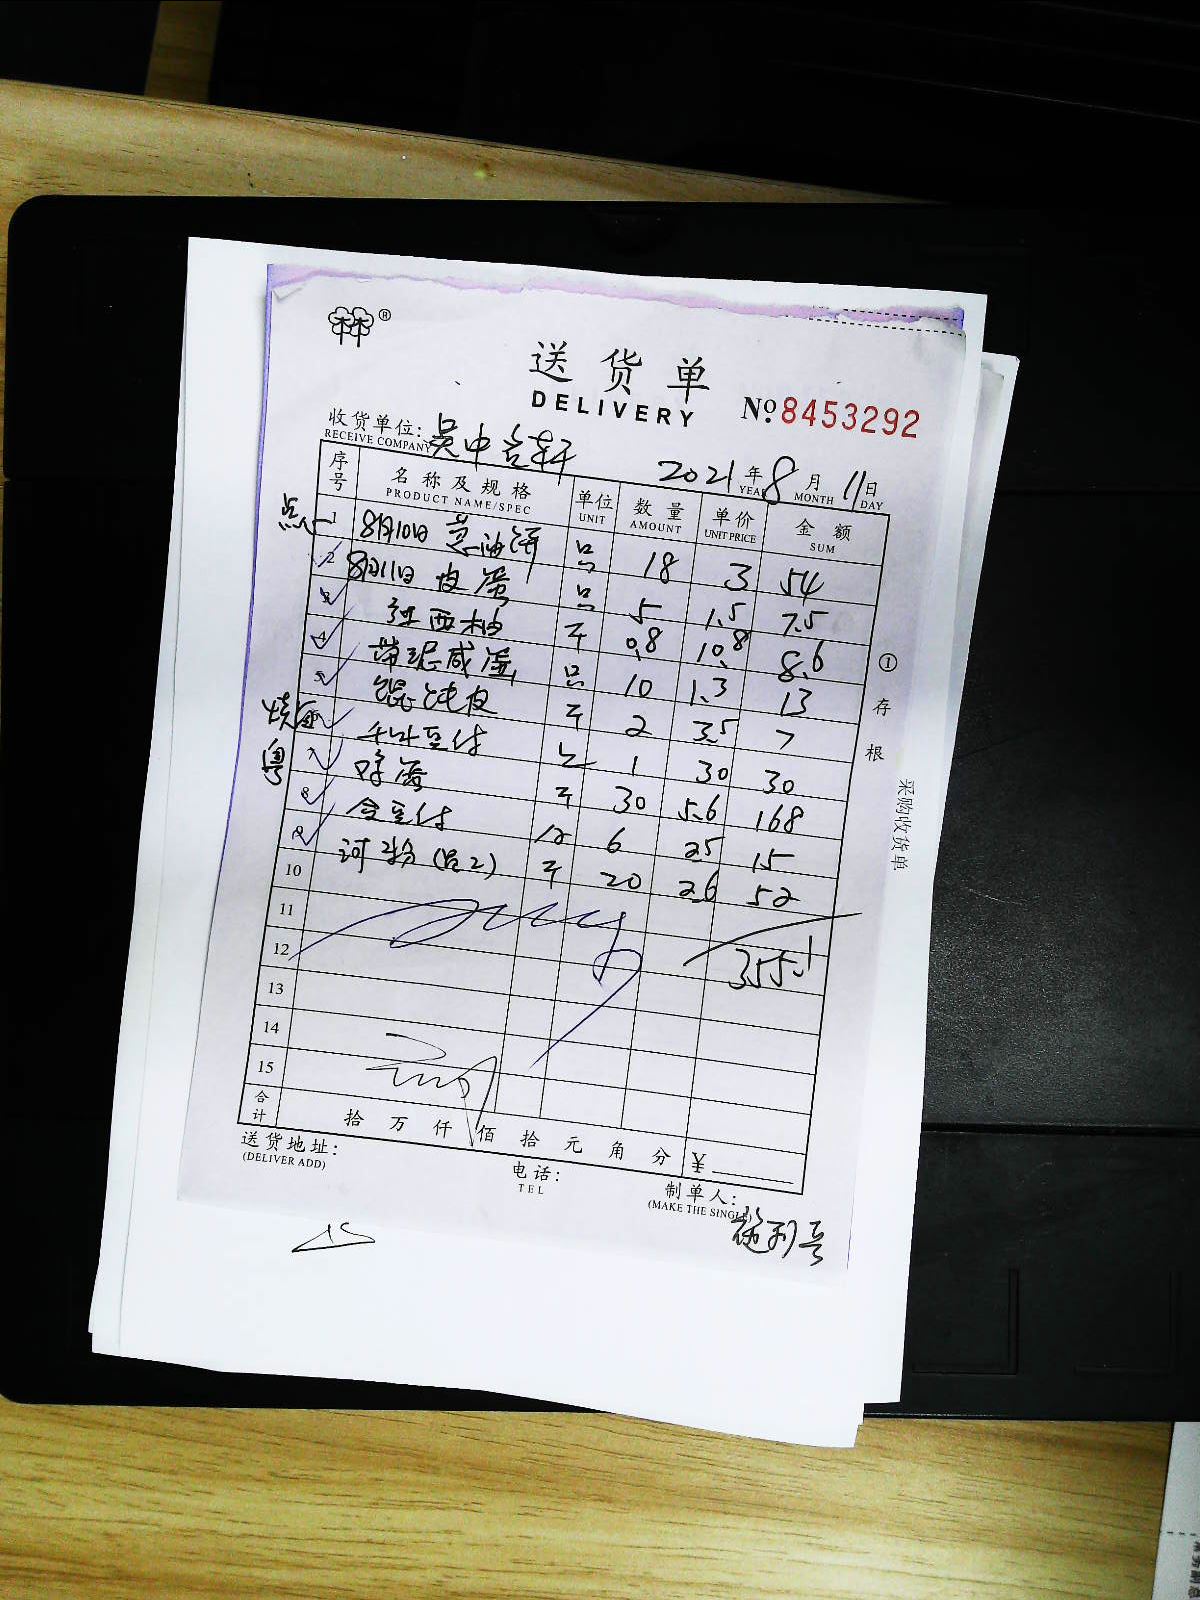 林®
送货单
DELIVERY
№8453292
收货单位: 吴中古轩
RECEIVE COMPANY
2021年8月11日
YEAR MONTH DAY
序号 名称及规格 单位 数量 单价 金额
PRODUCT NAME/SPEC UNIT AMOUNT UNIT PRICE SUM
点心
1 8月10日 葱油饼 只 18 3 54
2 8月11日 皮蛋 只 5 1.5 7.5
3 江西柚 斤 0.8 10.8 8.6
4 带泥咸蛋 只 10 1.3 13
5 馄饨皮 斤 2 3.5 7
6 千叶豆付 1 30 30
粤
7 蛋 斤 30 5.6 168
8 豆付 6 25 15
9 河粉(送2) 斤 20 2.6 52
10
11
12 355.1
13
14
15
合计 拾 万 仟 佰 拾 元 角 分 ¥
送货地址:
(DELIVER ADD)
电话:
TEL
制单人:
(MAKE THE SINGLE)
①存根
采购收货单